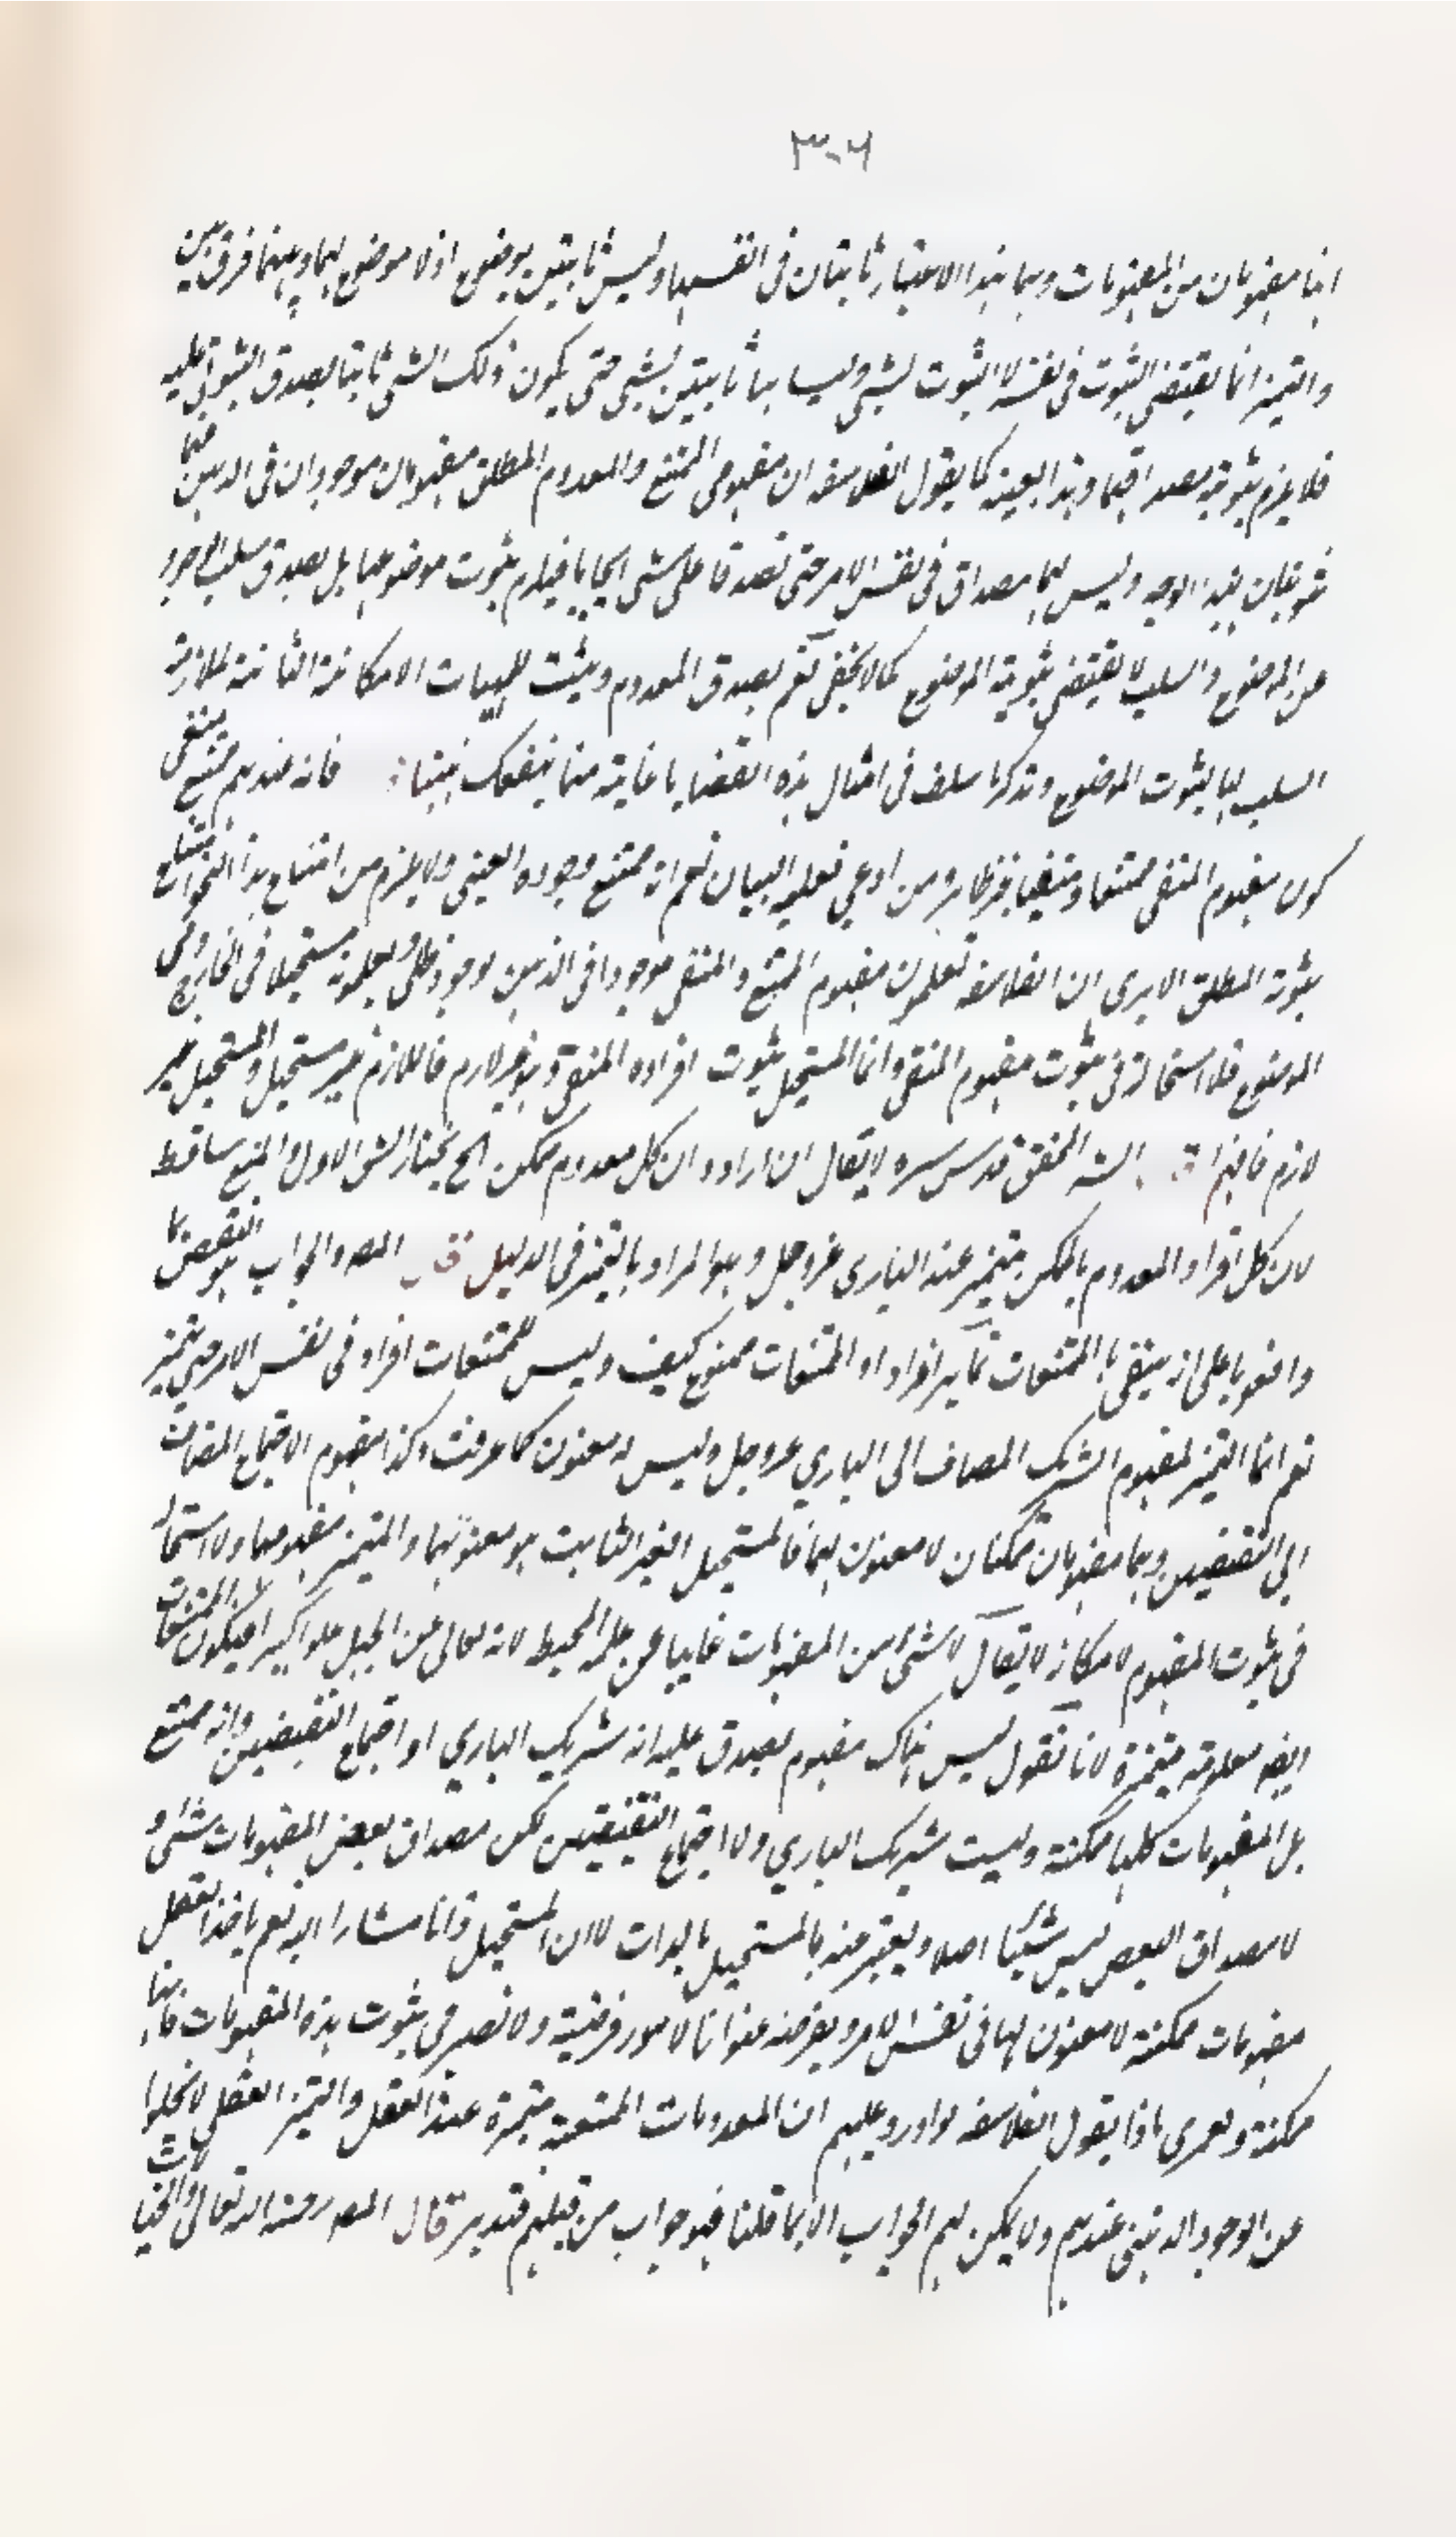 ٣٠٦
انها مفهومان من المفهومات وهما بهذا الاعتبار ثابتان فى انفسهما وليس ثابتين بموضوع اذ لا موضوع لهما وبينهما فرق بين
والتميز انما يقتضى الثبوت فى نفسه لا الثبوت لشئ وليسا هما ثابتين لشئ حتى يكون ذلك الشئ ثابتا بصدق الثبوتى عليه
فلا يلزم ثبوتية مصداقهما وهذا بعينه كما يقول الفلاسفه ان مفهومى الممتنع والمعدوم المطلق مفهومان موجودان فى الذهن فهما
ثبوتيان بهذا الوجه وليس لهما مصداق فى نفس الامر حتى تصدقا على شئ ايجابا فيلزم ثبوت موضوعهما بل يصدق سلب الوجود
عن الموضوع والسلب لا يقتضى ثبوتية الموضوع كمالا يخفى نعم يصدق المعدوم ويثبت للمهيات الامكانية الثابتة لملازمة
السلب لها لثبوت الموضوع وتذكر ما سلف فى امثال هذه القضايا فانه مما ينفعك فانه عندهم ممتنع منفى
كون مفهوم المنفى ممتنعا ومنفيا غير ظاهر ومن ادعى فعليه البيان نعم انه ممتنع وجوده العينى ولا يلزم من امتناع هذا النحو امتناع
ثبوته المطلق الا يرى ان الفلاسفه تعلمون مفهوم الممتنع والمنفى موجودا فى الذهن بوجود ظلى ويجعلونه مستحيلا فى الخارج وفى
الموضوع فلا استحالة فى ثبوت مفهوم المنفى وانما المستحيل ثبوت افراده المنفى وهو غير لازم فاللازم غير مستحيل والمستحيل غير
لازم فافهم الشه المحقق قدس سره لا يقال ان ارادو ان كل معدوم ممكن الخ يختار الشق الاول والمنع ساقط
لان كل افراد المعدوم الممكن متميز عند البارى عز وجل وهو المراد بالتميز فى الدليل المص والجواب هو النقض بما
وافقونا على انه منفى الممتنعات تمايز افراد الممتنعات ممنوع كيف وليس للممتنعات افراد فى نفس الامر حتى يتميز
نعم انما التميز لمفهوم الشريك المضاف الى البارى عز وجل وليس له معنون كما عرفت وكذا مفهوم الاجتماع المضاف
الى النقيضين وهما مفهومان ممكنان لا معنون لهما فالمستحيل الغير الثابت هو معنونهما والمتميز مفهومهما ولا استحالة
فى ثبوت المفهوم لامكانه لا يقال لا شئ من المفهومات غايبا عن علمه المحيط لانه تعالى عن الجهل علوا كبيرا فيكون الممتنعات
ايضه معلومة متميزة لانا نقول ليس هناك مفهوم يصدق عليه انه شريك البارى او اجتماع النقيضين وانه ممتنع
بل المفهومات كلها ممكنة وليست شريك البارى ولا اجتماع النقيضين لكن مصداق بعض المفهومات شئ و
لا مصداق البعض ليس شيئا اصلا ويعتبر عنه بالمستحيل بالذات لا ان المستحيل ذاتا مشارا اليه نعم ياخذ العقل
مفهومات ممكنة لا معنون لها فى نفس الامر ويفرضه عنوانا لامور فرضية ولا نصير فى ثبوت هذه المفهومات فانها
ممكنة ولعمرى ماذا يقول الفلاسفه لو اورد عليهم ان المعدومات الممتنعة متميزة عند العقل والتميز العقلى لا يخلوا
عن الوجود الذهنى عندهم ولا يمكن لهم الجواب الا بما قلنا فهو جواب من قبلهم فتدبر قال المص رحمه الله تعالى والخيالات